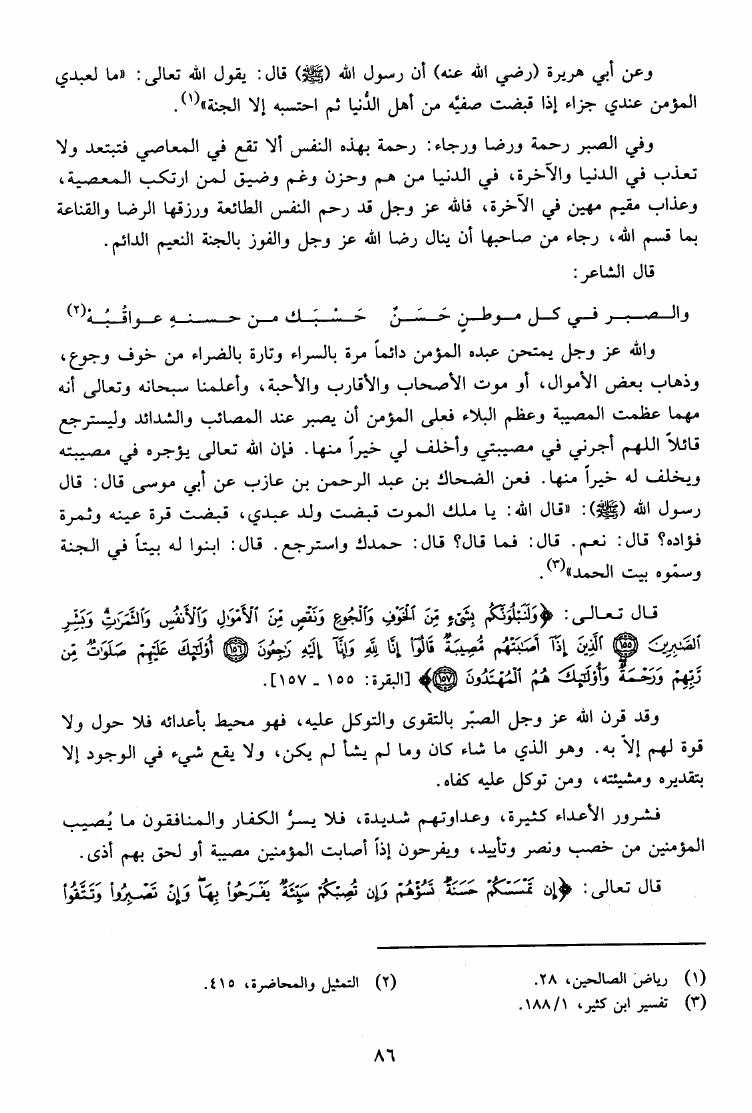 وعن أبي هريرة (رضي الله عنه) أن رسول الله (ﷺ) قال: يقول الله تعالى: «ما لعبدي
المؤمن عندي جزاء إذا قبضت صفيَّه من أهل الدُّنيا ثم احتسبه إلا الجنة»(١).
وفي الصبر رحمة ورضا ورجاء: رحمة بهذه النفس ألا تقع في المعاصي فتبتعد ولا
تعذب في الدنيا والآخرة، في الدنيا من هم وحزن وغم وضيق لمن ارتكب المعصية،
وعذاب مقيم مهين في الآخرة، فالله عز وجل قد رحم النفس الطائعة ورزقها الرضا والقناعة
بما قسم الله، رجاء من صاحبها أن ينال رضا الله عز وجل والفوز بالجنة النعيم الدائم.
قال الشاعر:
والـصـبـر فـي كـل مـوطـنٍ حَـسَـنٌ حَـسْـبَـك مـن حـسـنـهِ عـواقُـبُـهْ(٢)
والله عز وجل يمتحن عبده المؤمن دائماً مرة بالسراء وتارة بالضراء من خوف وجوع،
وذهاب بعض الأموال، أو موت الأصحاب والأقارب والأحبة، وأعلمنا سبحانه وتعالى أنه
مهما عظمت المصيبة وعظم البلاء فعلى المؤمن أن يصبر عند المصائب والشدائد وليسترجع
قائلاً اللهم أجرني في مصيبتي وأخلف لي خيراً منها. فإن الله تعالى يؤجره في مصيبته
ويخلف له خيراً منها. فعن الضحاك بن عبد الرحمن بن عازب عن أبي موسى قال: قال
رسول الله (ﷺ): «قال الله: يا ملك الموت قبضت ولد عبدي، قبضت قرة عينه وثمرة
فؤاده؟ قال: نعم. قال: فما قال؟ قال: حمدك واسترجع. قال: ابنوا له بيتاً في الجنة
وسمّوه بيت الحمد»(٣).
قال تعالى: ﴿وَلَنَبْلُوَنَّكُم بِشَيْءٍ مِّنَ الْخَوْفِ وَالْجُوعِ وَنَقْصٍ مِّنَ الْأَمْوَالِ وَالْأَنفُسِ وَالثَّمَرَاتِ وَبَشِّرِ
الصَّابِرِينَ ﴿١٥٥﴾ الَّذِينَ إِذَا أَصَابَتْهُم مُّصِيبَةٌ قَالُوا إِنَّا لِلَّهِ وَإِنَّا إِلَيْهِ رَاجِعُونَ ﴿١٥٦﴾ أُولَٰئِكَ عَلَيْهِمْ صَلَوَاتٌ مِّن
رَّبِّهِمْ وَرَحْمَةٌ وَأُولَٰئِكَ هُمُ الْمُهْتَدُونَ ﴿١٥٧﴾﴾ [البقرة: ١٥٥ - ١٥٧].
وقد قرن الله عز وجل الصبّر بالتقوى والتوكل عليه، فهو محيط بأعدائه فلا حول ولا
قوة لهم إلاّ به. وهو الذي ما شاء كان وما لم يشأ لم يكن، ولا يقع شيء في الوجود إلا
بتقديره ومشيئته، ومن توكل عليه كفاه.
فشرور الأعداء كثيرة، وعداوتهم شديدة، فلا يسرُّ الكفار والمنافقون ما يُصيب
المؤمنين من خصب ونصر وتأييد، ويفرحون إذاً أصابت المؤمنين مصيبة أو لحق بهم أذى.
قال تعالى: ﴿إِن تَمْسَسْكُمْ حَسَنَةٌ تَسُؤْهُمْ وَإِن تُصِبْكُمْ سَيِّئَةٌ يَفْرَحُوا بِهَا وَإِن تَصْبِرُوا وَتَتَّقُوا
(١) رياض الصالحين، ٢٨.
(٢) التمثيل والمحاضرة، ٤١٥.
(٣) تفسير ابن كثير، ١/ ١٨٨.
٨٦